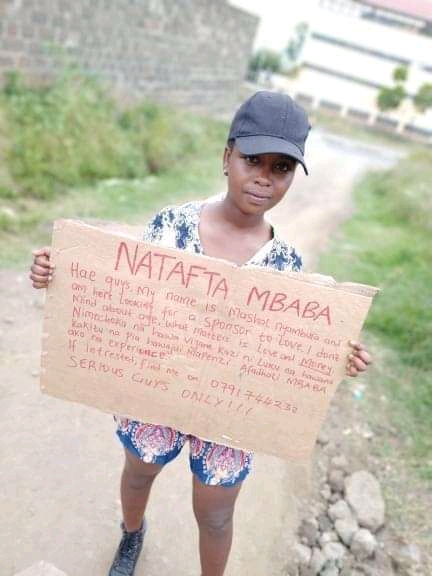 NATAFTA MBABA
Hae guys, My name is Mashot Nyambura and
am here Lookin for a sponsor to Love. I dont
Mind about age, what matters is Love and Money
Nimechoka na hawa vijana Kazi ni Luku na hawana
kakitu na pia hawajui Mapenzi. Afadhali MBABA
ako na experience.
If Intrested, Find me on 0791744232
SERIOUS GUYS ONLY!!!